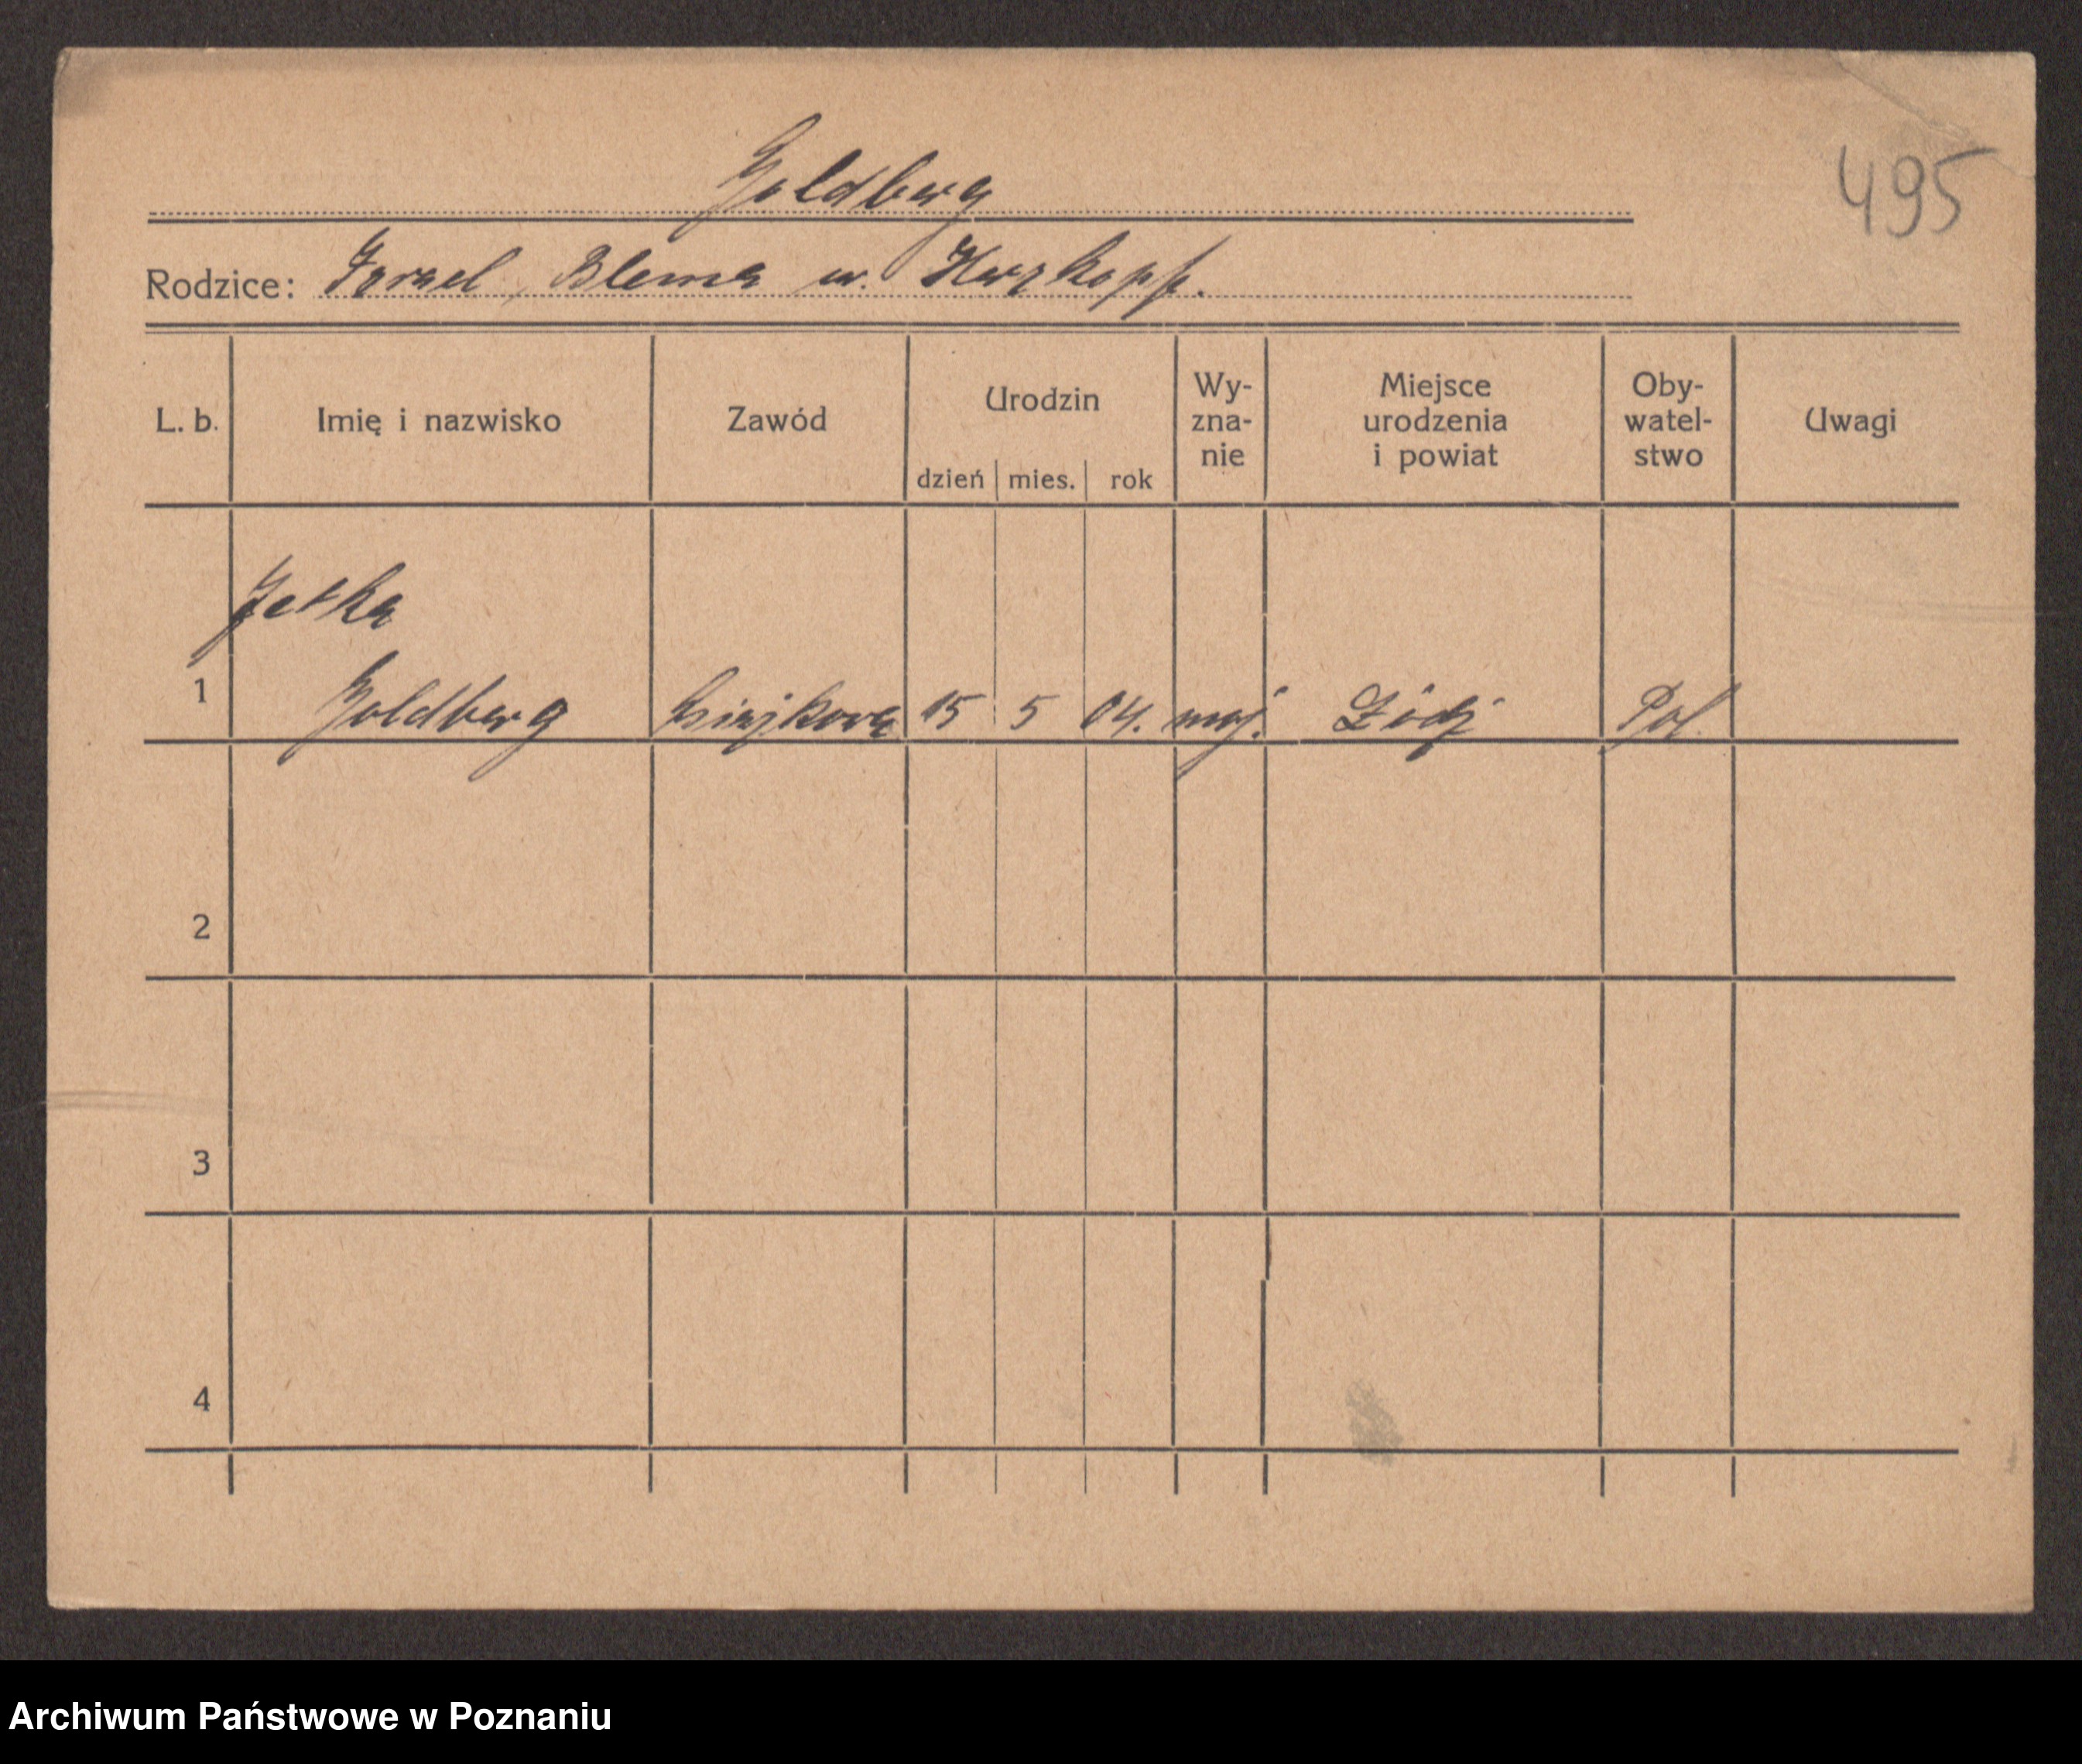 Goldberg
495
Rodzice: Izrael, Blema u. Herzkopf.
L. b. Imię i nazwisko Zawód Urodzin dzień mies. rok Wy-zna-nie Miejsce urodzenia i powiat Oby-watel-stwo Uwagi
Jetka
1 Goldberg 15 5 04. moj. Łódź Pol.
2
3
4
Archiwum Państwowe w Poznaniu